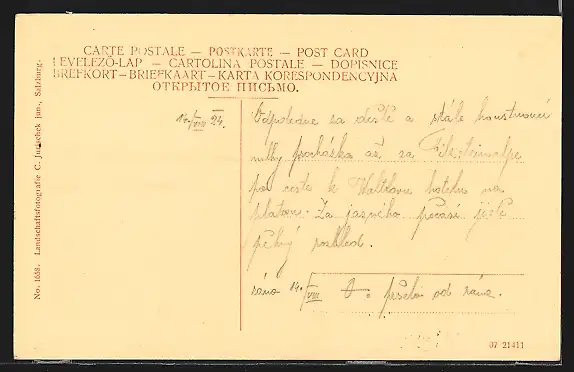 CARTE POSTALE — POSTKARTE — POST CARD
LEVELEZŐ-LAP — CARTOLINA POSTALE — DOPISNICE
BREFKORT — BRIEFKAART — KARTA KORESPONDENCYJNA
ОТКРЫТОЕ ПИСЬМО.
14./VIII 24.
Odpoledne za deště a stále houstnoucí
mlhy procházka až za
po cestě k hotelu na
plateau. Za jasného počasí jistě
pěkný rozhled.
ráno 14./VIII pršelo od rána.
No. 1658. Landschaftsfotografie C. Jurischek jun., Salzburg.
07 21411